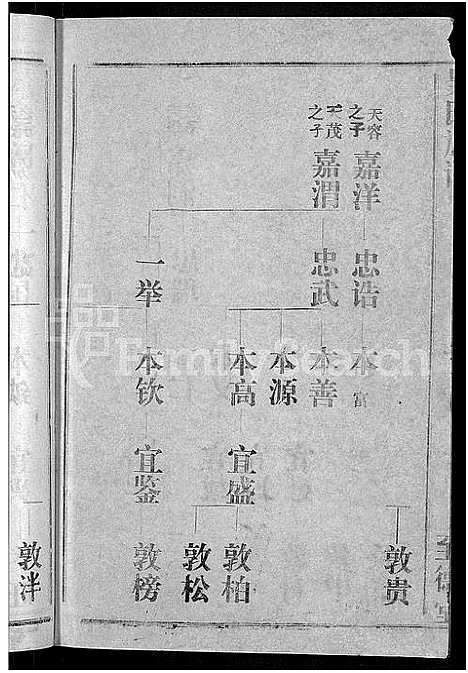 天容之子 嘉洋
天茂之子 嘉渭
忠诰
忠武
一举
本富
本善
本源
本高
本钦
宜盛
宜鉴
敦贵
敦柏
敦松
敦榜
敦泮
至德堂
FamilySearch